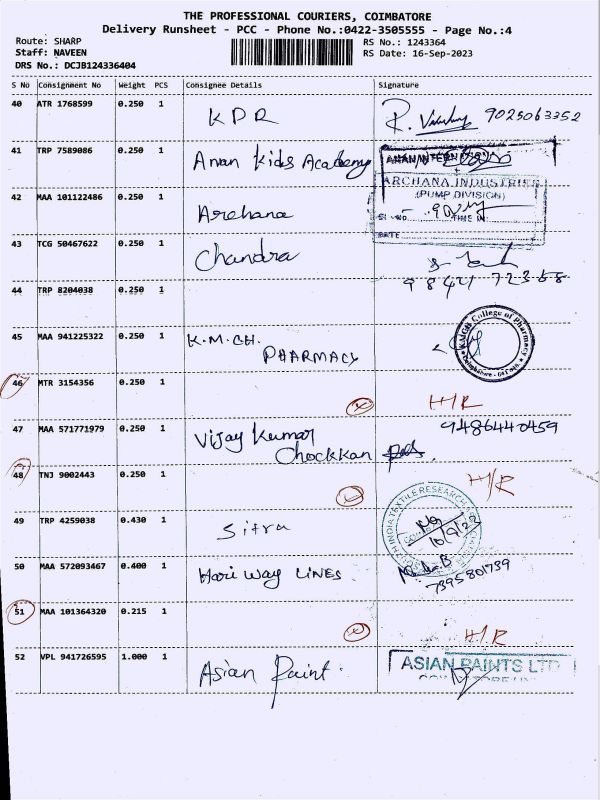 THE PROFESSIONAL COURIERS, COIMBATORE
Delivery Runsheet - PCC - Phone No.:0422-3505555 - Page No.:4
Route: SHARP
RS No.: 1243364
Staff: NAVEEN
RS Date: 16-Sep-2023
DRS No.: DCJB124336404
S No Consignment No Weight PCS Consignee Details Signature
40 ATR 1768599 0.250 1 KPR 9025063352
41 TRP 7589086 0.250 1 Anan Kids Academy
ARCHANA INDUSTRIES
(PUMP DIVISION)
42 MAA 101122486 0.250 1 Archana
DATE
43 TCG 50467622 0.250 1 Chandra
98421 72368
44 TRP 8204038 0.250 1
45 MAA 941225322 0.250 1 K.M.CH. PHARMACY
KMCH College of Pharmacy
46 MTR 3154356 0.250 1 H/R
47 MAA 571771979 0.250 1 Vijay Kumar 9486440459
Chockkan
48 TNJ 9002443 0.250 1 H/R
49 TRP 4259038 0.430 1 Sitra
50 MAA 572093467 0.400 1 Hari Way LINES
7395801739
51 MAA 101364320 0.215 1 H/R
52 VPL 941726595 1.000 1 Asian Paint.
ASIAN PAINTS LTD